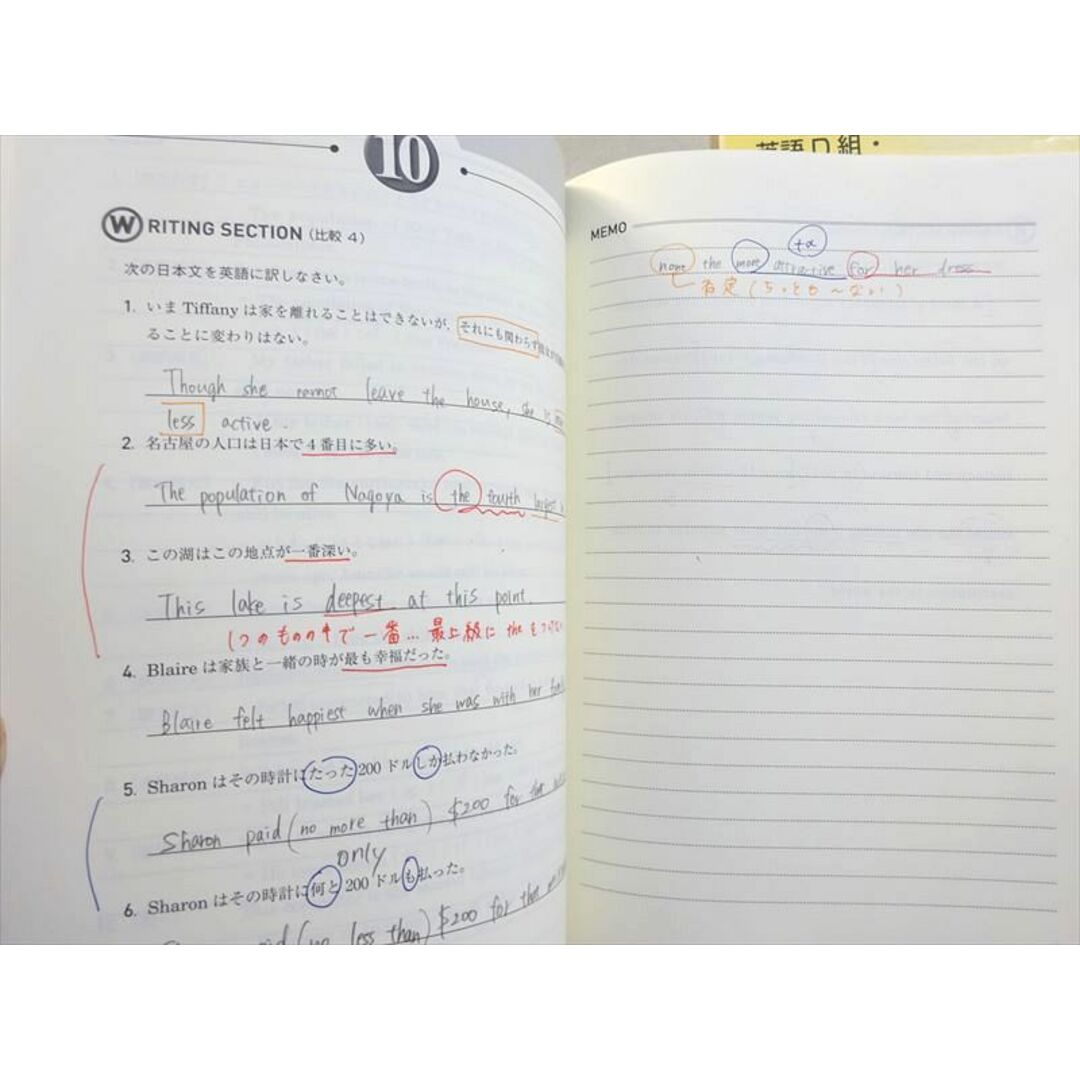 10
WRITING SECTION (比較 4)
次の日本文を英語に訳しなさい。
1. いま Tiffany は家を離れることはできないが、それにも関わらず
ることに変わりはない。
Though she cannot leave the house, she is
less active.
2. 名古屋の人口は日本で4番目に多い。
The population of Nagoya is the fourth largest
3. この湖はこの地点が一番深い。
This lake is deepest at this point.
1つのものの中で一番…最上級に the を
4. Blaire は家族と一緒の時が最も幸福だった。
Blaire felt happiest when she was with her
5. Sharon はその時計にたった 200 ドルしか払わなかった。
Sharon paid (no more than) $200 for the
only
6. Sharon はその時計に何と 200 ドルも払った。
(no less than) $200 for the
英語口組・
MEMO
+α
none the more attractive for her dress
否定 (ちっとも〜ない)